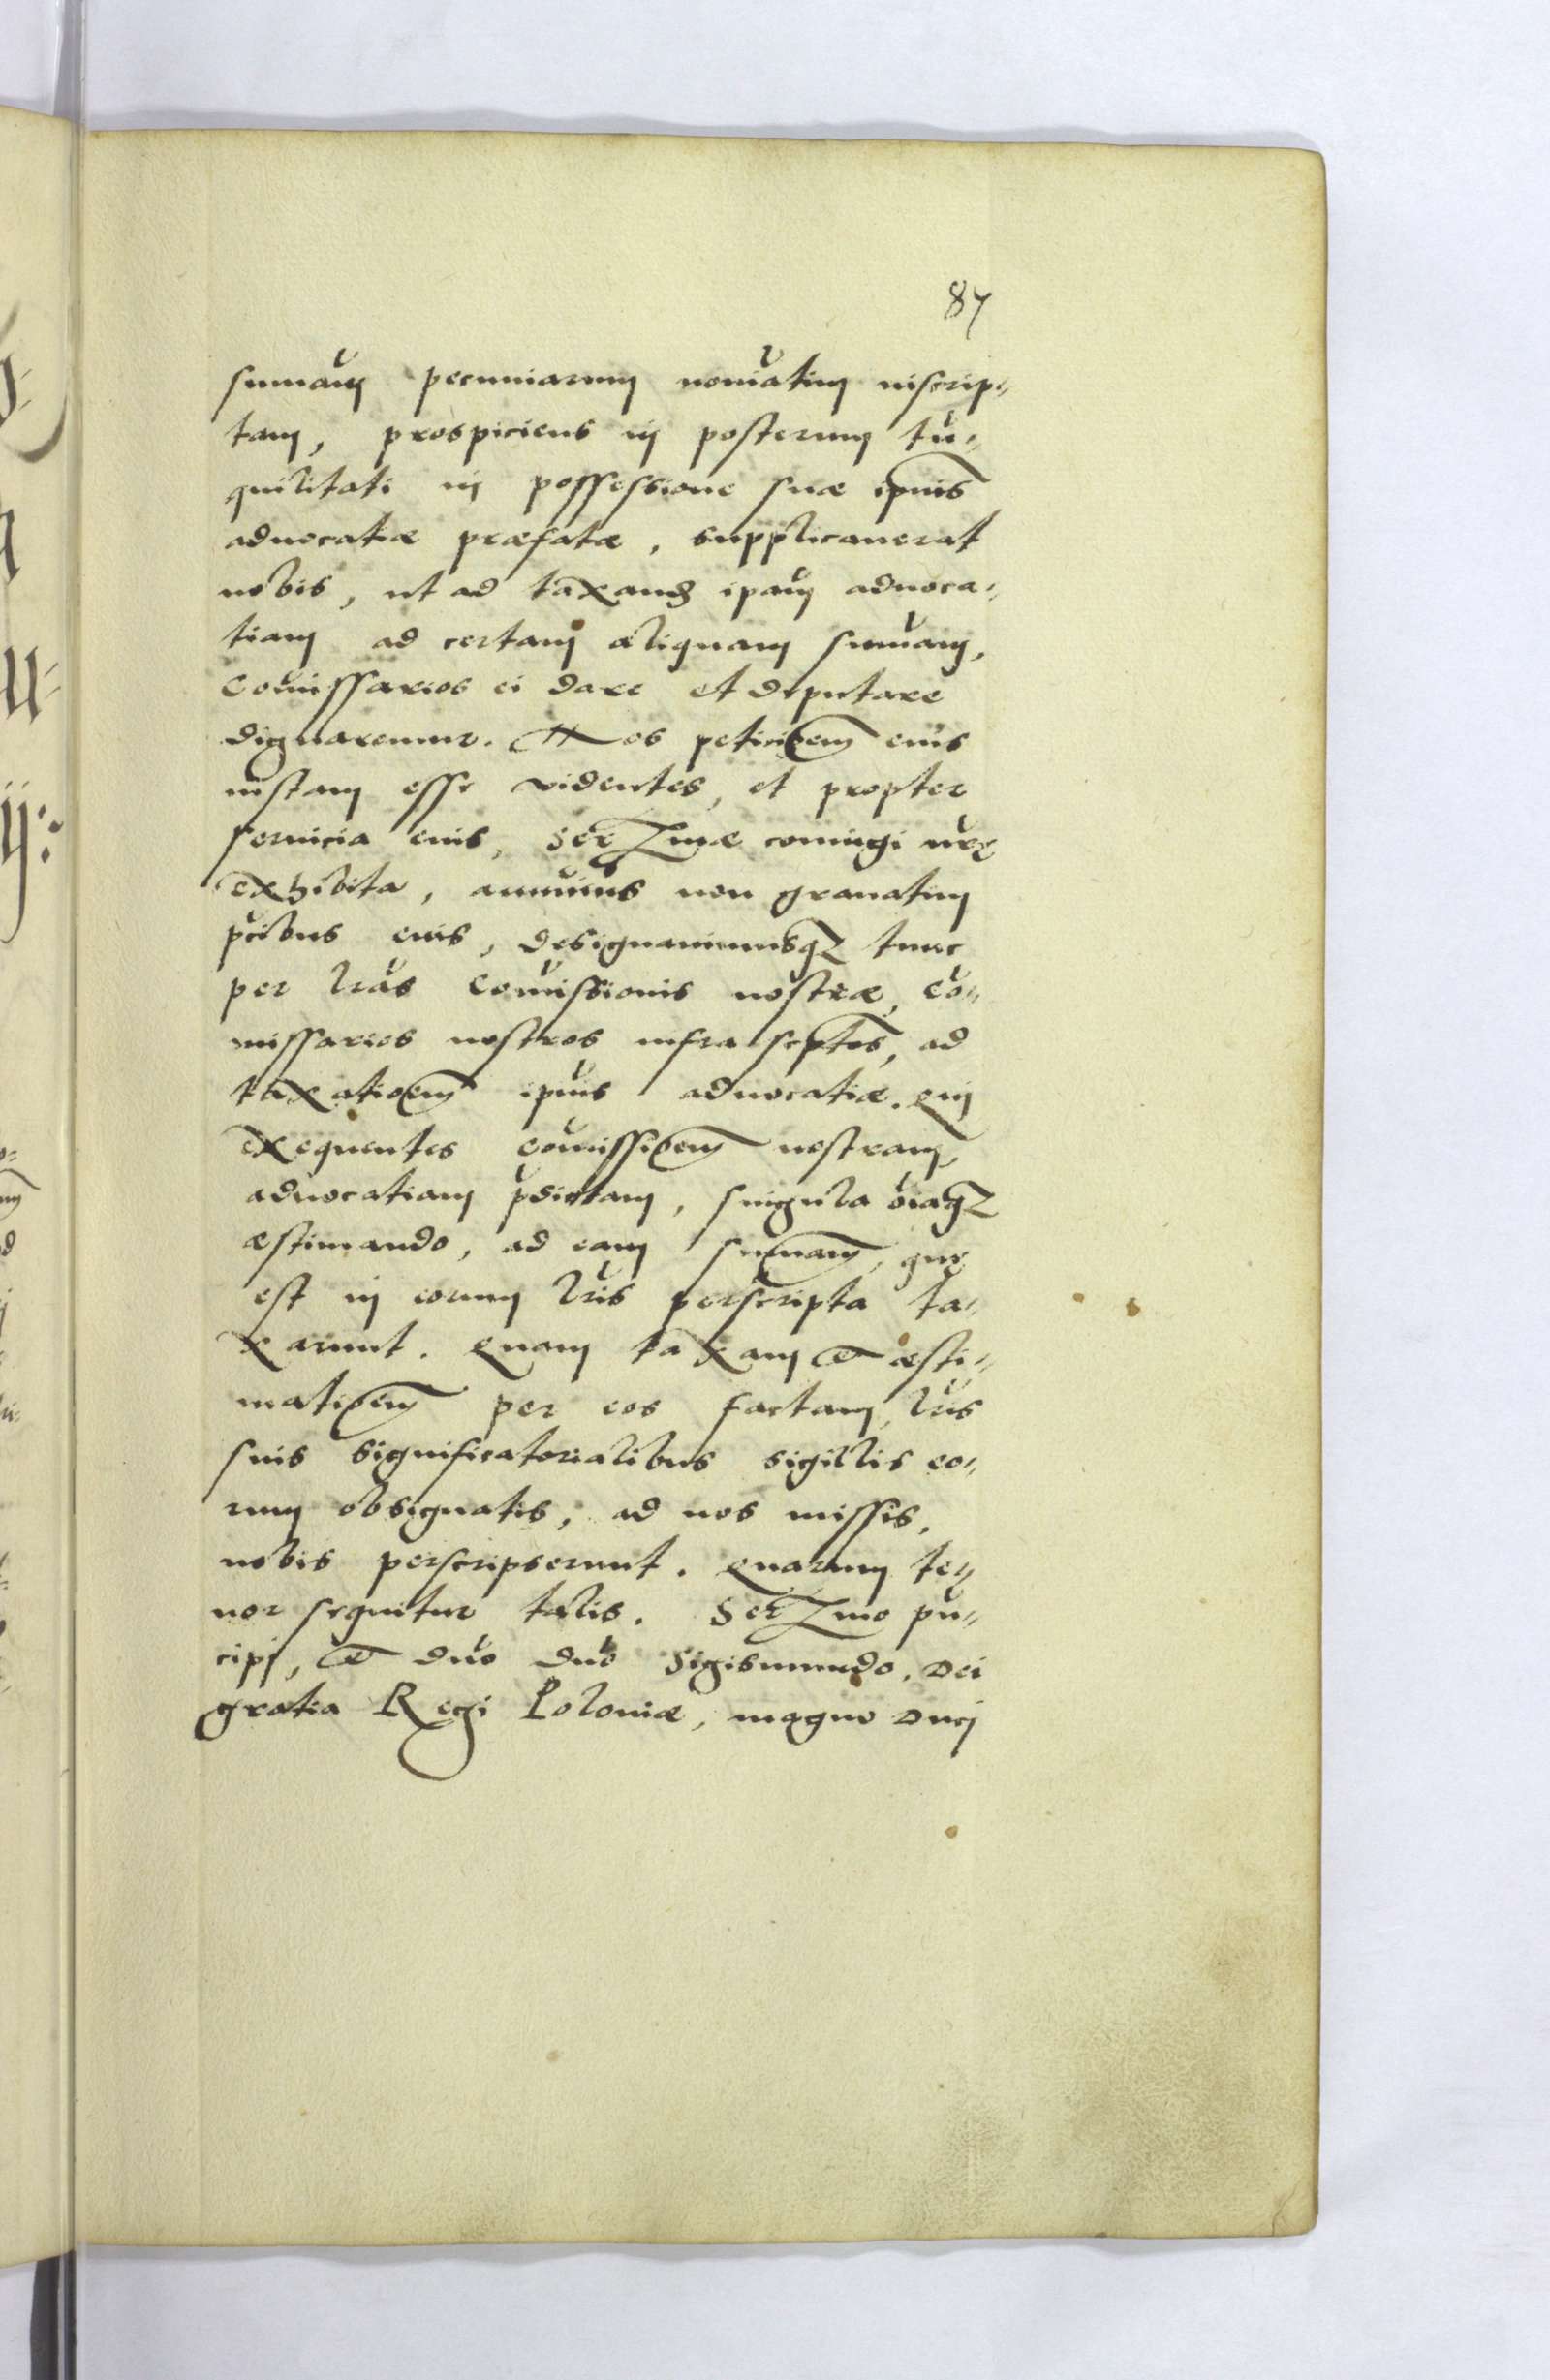 87
sumam̄ pecuniarum nomīatim inscrip-
tam, prospiciens in posterum trā-
quilitati in possessione suæ ipīus
aduocatiæ præfatæ, supplicauerat
nobis, ut ad taxand ipām aduoca-
tiam ad certam aliquam sum̄am,
com̄issarios ei dare et deputare
dignaremur. Nos peticiōem eius
iustam esse videntes, et propter
seruicia eius, Serⁿmæ coniugi nrę
exhibita, annuim̄us non grauatim
p̄cibus eius, designauimusqʒ tunc
per lrās Com̄issionis nostræ, Cō-
missarios nostros infra scp̄tos, ad
taxatiōem ipīus aduocatiæ. Qui
exequentes com̄issiōem nostram,
aduocatiam p̄dictam, singula oīaqʒ
æstimando, ad eam sum̄am, quę
est in eorum lrīs perscripta ta-
xarunt. Quam taxam et æsti-
matiōem per eos factam, lrīs
suis significatorialibus sigillis eo-
rum obsignatis, ad nos missis,
nobis perscripserunt. Quarum te-
nor sequitur talis. Serⁿmo prī-
cipi, et dno dno Sigismundo, Dei
gratia Regi Poloniæ, magno Duci